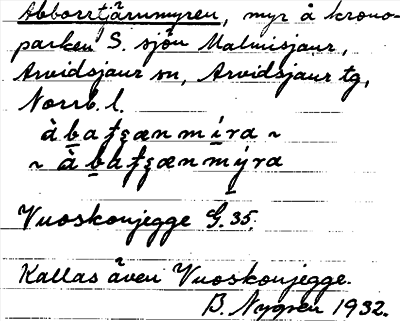 Abborrtjärnmyren, myr å krono-
parken S. sjön Malmisjaur,
Arvidsjaur sn, Arvidsjaur tg,
Norrb. l.
àbatʂæn míra ~
~ àbatʂæn mýra
Vuoskonjegge G. 35.
Kallas även Vuoskonjegge.
B. Nygren 1932.